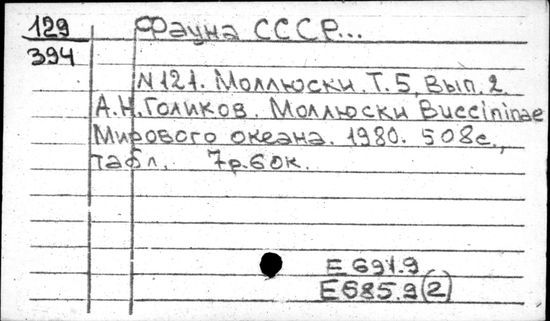 129
394
Фауна СССР...
N 121. Моллюски. Т. 5, вып. 2.
А.Н. Голиков. Моллюски Buccininae
Мирового океана. 1980. 508с.,
табл. 7р.60к.
Е 691.9
Е685.9(2)